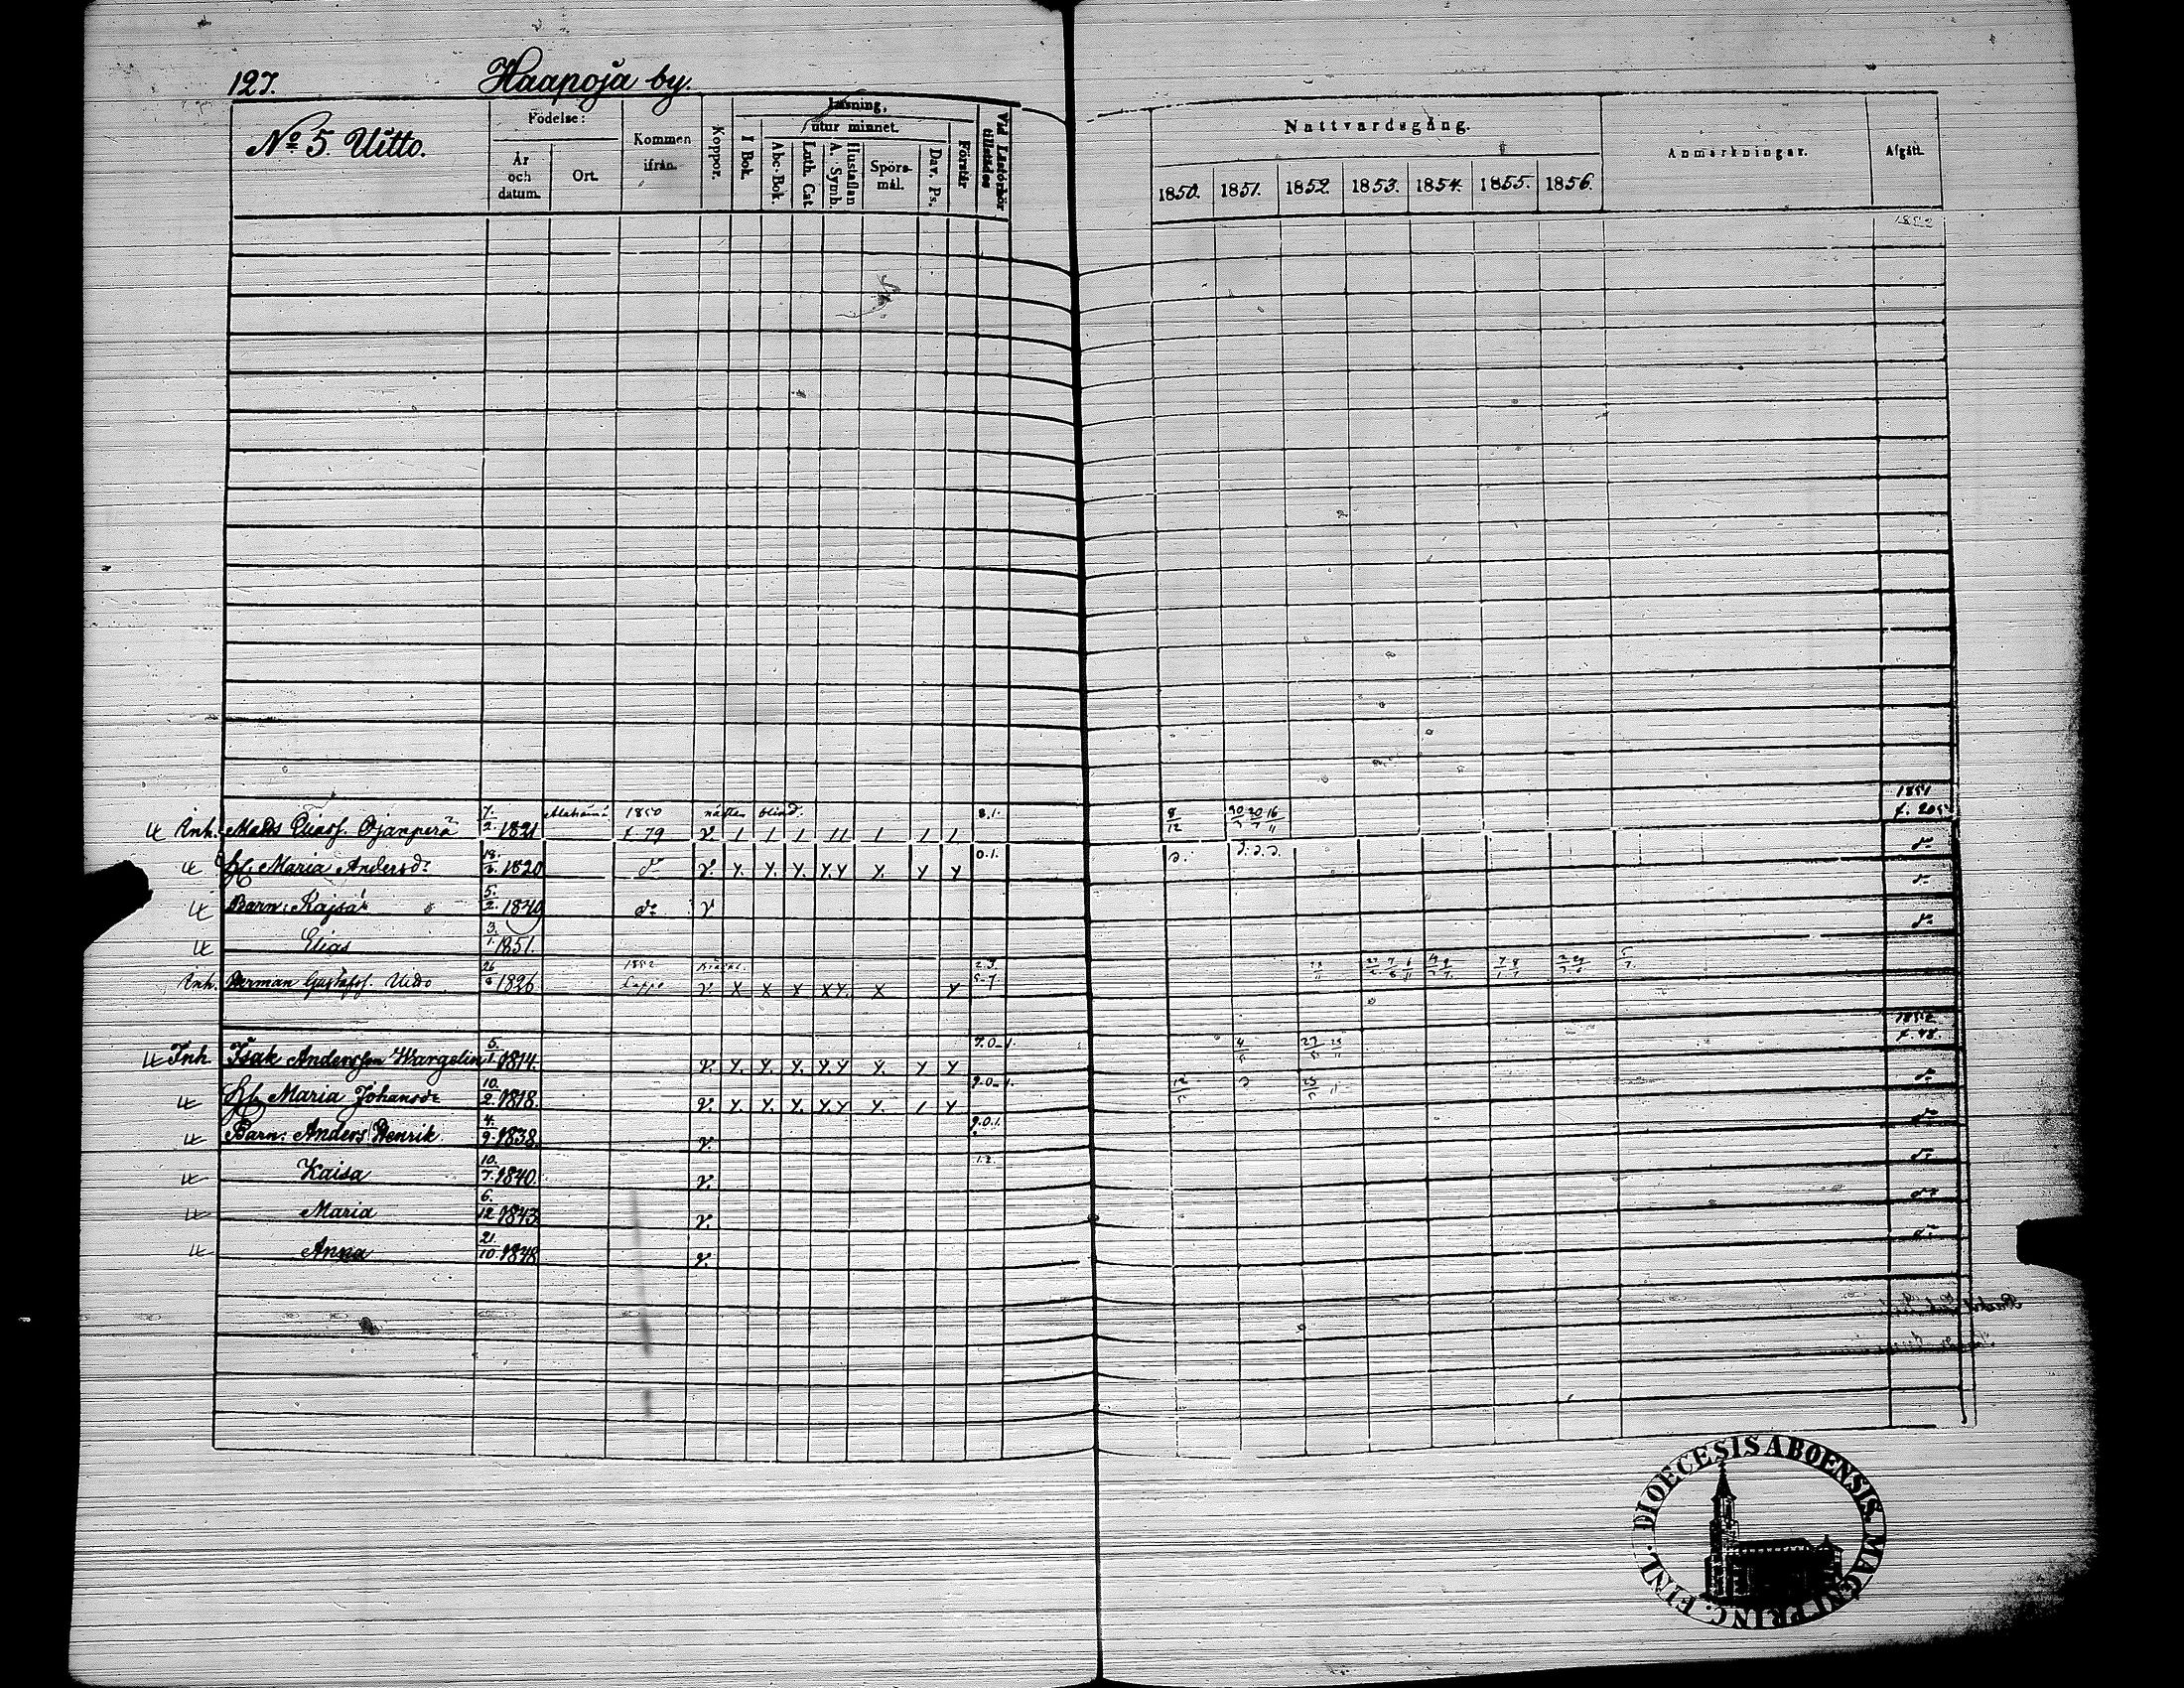 127. Haapoja by.
No 5. Uitto.
Födelse: År och datum. Ort. Kommen ifrån. Koppor. Läsning, I Bok. utur minnet. Abc-Bok. Luth. Cat. Hustaflan A. Symb. Spörsmål. Dav. Ps. Förstår Vid Läsförhör tillstädes
Nattvardsgång. Anmärkningar. Afgått.
1850. 1851. 1852. 1853. 1854. 1855. 1856.
1850 nästan blind. 8.1. 8/12 1851
Inh. Matts Eliass. Ojanperä 7/2 1821 f. 79 v. f. 205
Hu. Maria Andersdr 1820 dr v. y. y. y. y. y y. y y 0.1. dr
Barn: Kajsa 5/2 1849 dr v dr
Elias 3/1 1851. dr
1852
Inh. Herman Gustafss. Uitto 26 1826 Lappo v. x x x x y. x y
1852
Inh. Isak Andersson Wargelin 5/1 1814. v. y. y. y. y. y y. y y 9.0-1. f. 48.
Hu. Maria Johansdr 10/2 1818. v. y. y. y. y. y y. / y 9.0-1. dr
Barn: Anders Henrik 4/9 1838. v. 9.0.1. dr
Kaisa 10/7 1840. v. 1.2. dr
Maria 6/12 1843 v. dr
Anna 21/10 1848 v. dr
DIOECESIS ABOENSIS. MAGNI PRINC. FINL.